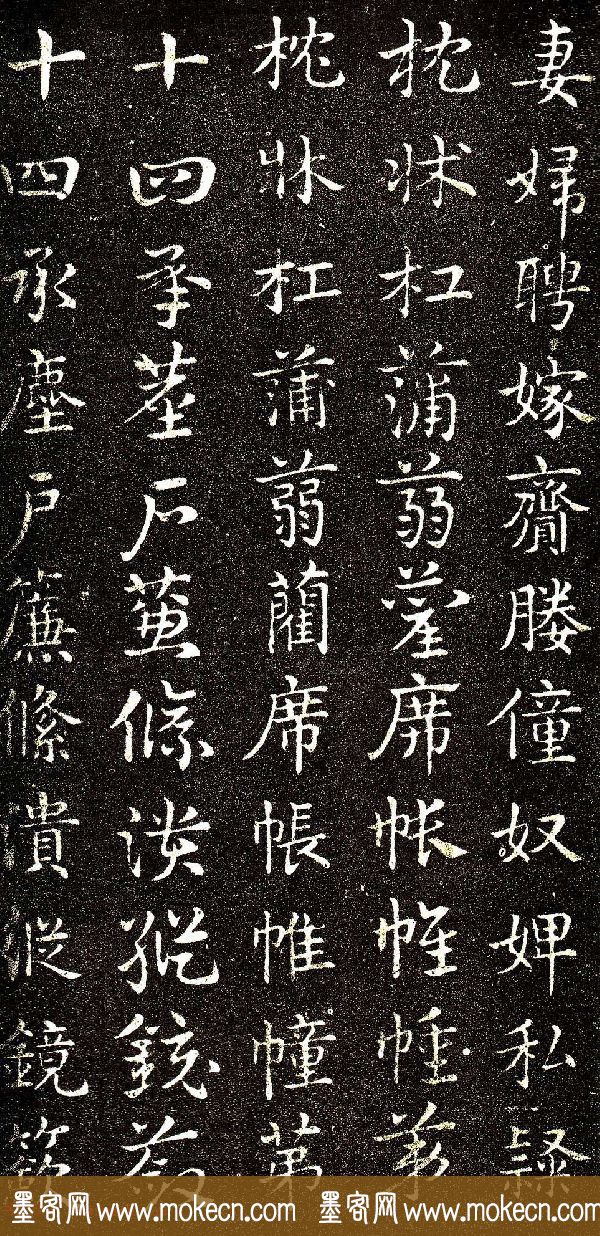 妻婦聘嫁齎媵僮奴婢私隸
枕牀杠蒲蒻藺席帳帷幢第
枕牀杠蒲蒻藺席帳帷幢第
十四承塵户簾絛潰縱鏡
十四承塵户簾絛潰縱鏡
墨客网 www.mokecn.com 墨客网 www.mokecn.com